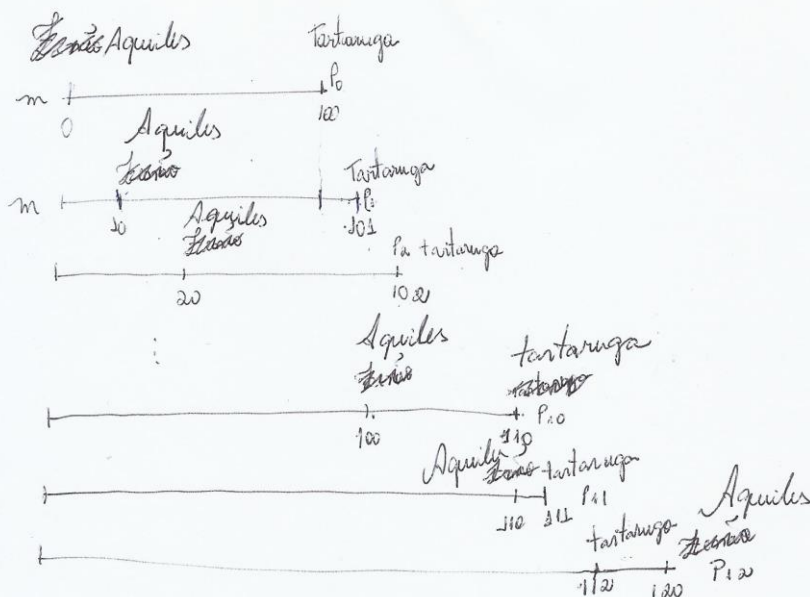 Aquiles Tartaruga
m P0
0 100
Aquiles
Tartaruga
m P1
10 101
Aquiles
P2 tartaruga
20 102
Aquiles tartaruga
100 110 P10
Aquiles tartaruga
110 111 P11
tartaruga Aquiles
112 120 P12